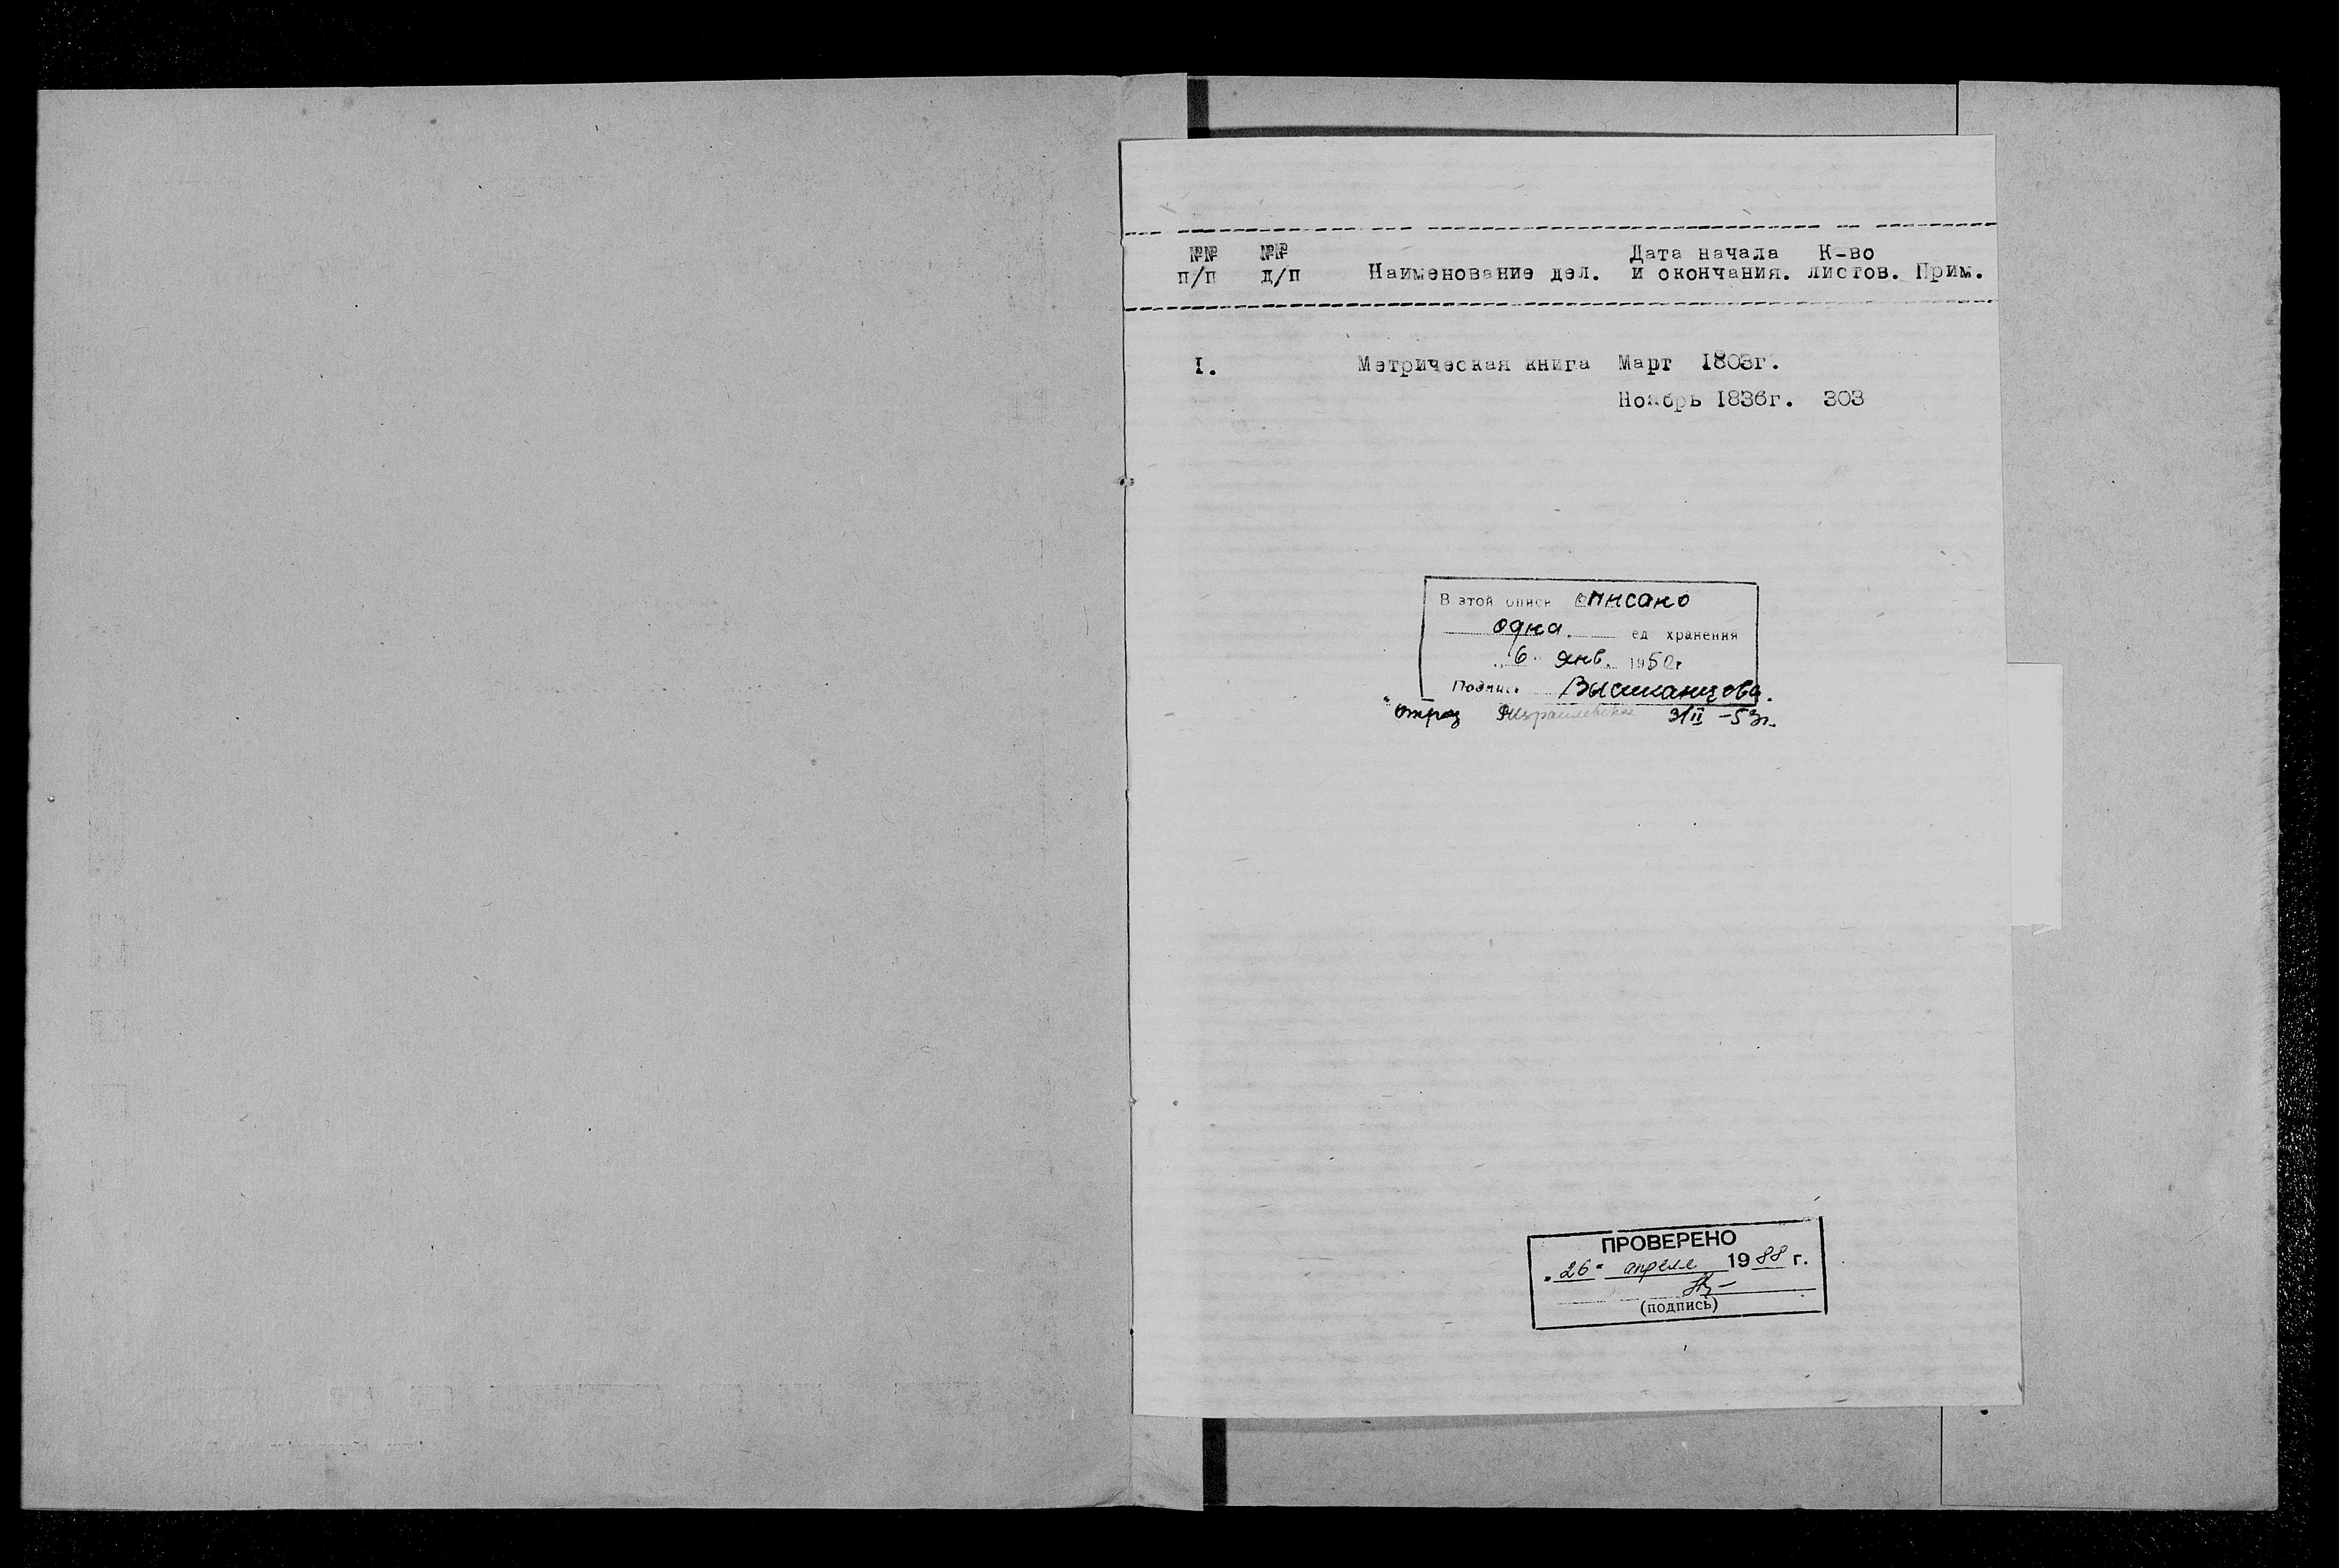 №№ №№ Дата начала К-во
п/п д/п Наименование дел. и окончания. листов. Прим.
I. Метрическая книга Март I803г.
Ноябрь I836г. 303
В этой описи описано
одна. ед хранения
„6" янв. 1950г
Подпись Высиканцова.
3/II –53г.
ПРОВЕРЕНО
„26" апреля 1988 г.
(подпись)